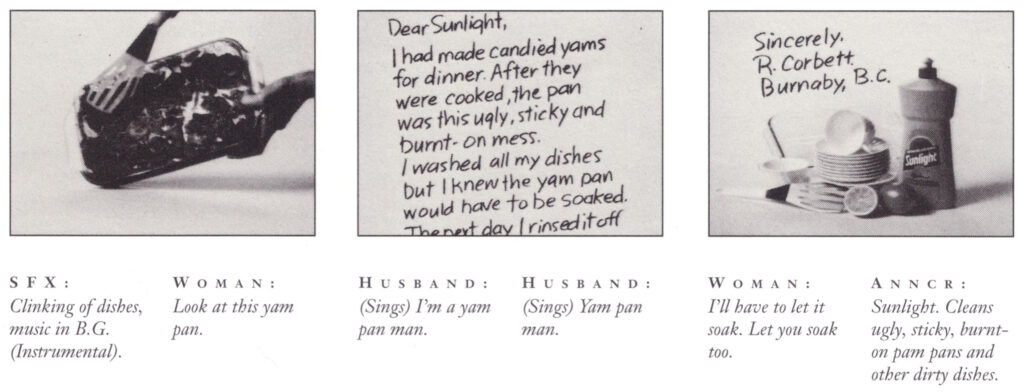 Dear Sunlight,
I had made candied yams
for dinner. After they
were cooked, the pan
was this ugly, sticky and
burnt-on mess.
I washed all my dishes
but I knew the yam pan
would have to be soaked.
The next day I rinsed it off
Sincerely,
R. Corbett
Burnaby, B.C.
Sunlight
SFX:
Clinking of dishes,
music in B.G.
(Instrumental).
WOMAN:
Look at this yam
pan.
HUSBAND:
(Sings) I'm a yam
pan man.
HUSBAND:
(Sings) Yam pan
man.
WOMAN:
I'll have to let it
soak. Let you soak
too.
ANNCR:
Sunlight. Cleans
ugly, sticky, burnt-
on pam pans and
other dirty dishes.